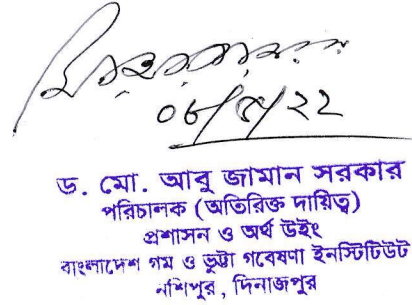 ০৮/৫/২২
ড. মো. আবু জামান সরকার
পরিচালক (অতিরিক্ত দায়িত্ব)
প্রশাসন ও অর্থ উইং
বাংলাদেশ গম ও ভুট্টা গবেষণা ইনস্টিটিউট
নশিপুর, দিনাজপুর